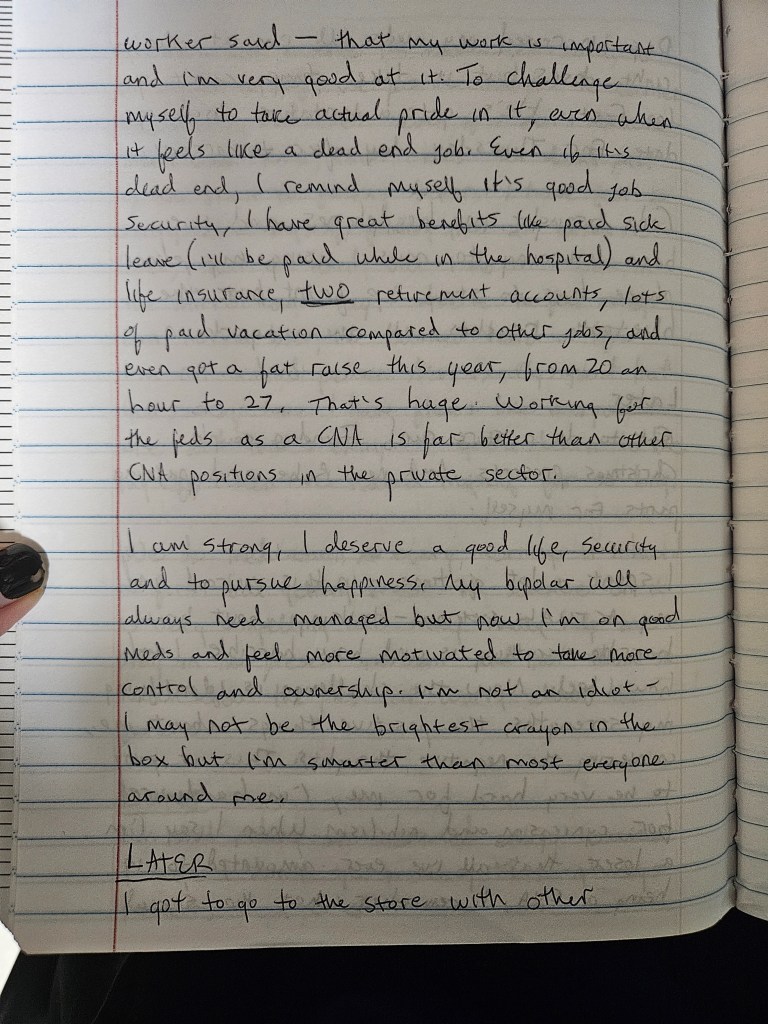 worker said — that my work is important
and i'm very good at it. To challenge
myself to take actual pride in it, even when
it feels like a dead end job. Even if it's
dead end, I remind myself it's good job
security, I have great benefits like paid sick
leave (i'll be paid while in the hospital) and
life insurance, two retirement accounts, lots
of paid vacation compared to other jobs, and
even got a fat raise this year, from 20 an
hour to 27. That's huge. Working for
the feds as a CNA is far better than other
CNA positions in the private sector.
I am strong, I deserve a good life, security
and to pursue happiness. My bipolar will
always need managed but now I'm on good
meds and feel more motivated to take more
control and ownership. I'm not an idiot -
I may not be the brightest crayon in the
box but I'm smarter than most everyone
around me.
LATER
I got to go to the store with other